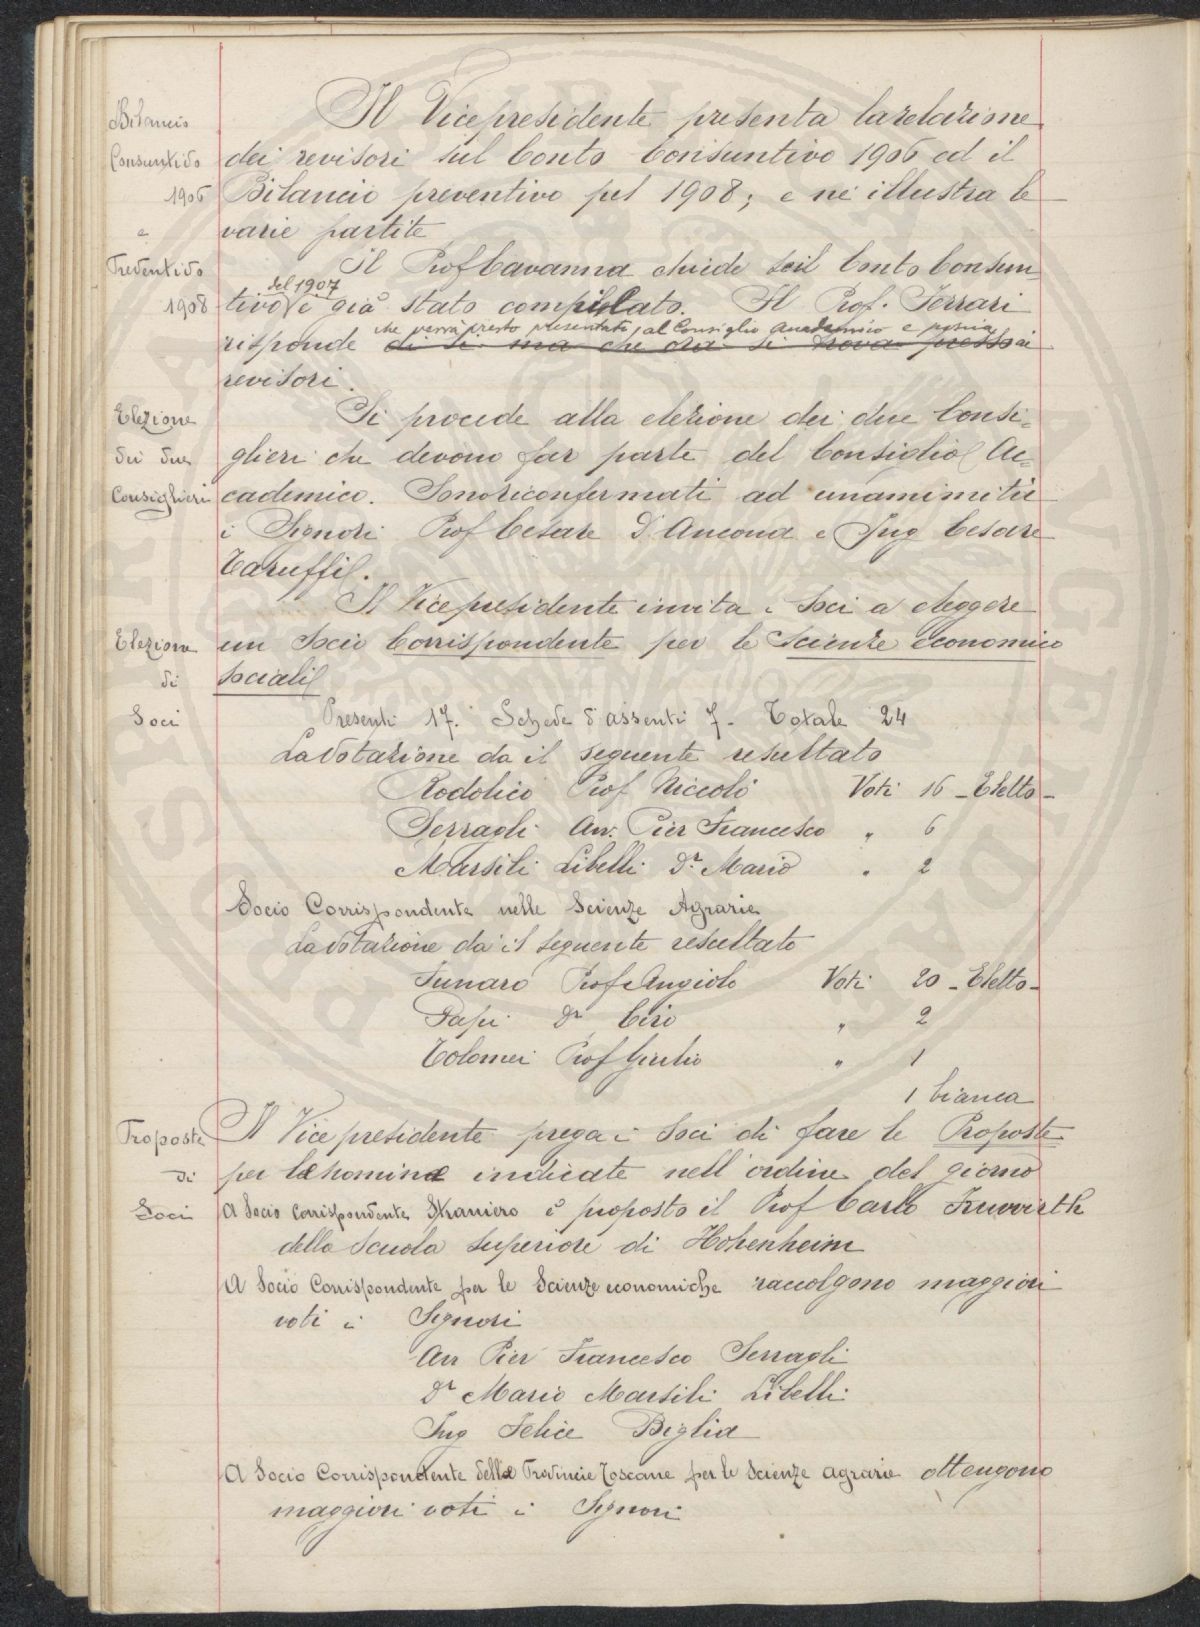 Bilancio
Consuntivo
1906
e
Preventivo
1908
Il Vicepresidente presenta la relazione
dei revisori sul Conto Consuntivo 1906 ed il
Bilancio preventivo pel 1908; e ne illustra le
varie partite
Il Prof Cavanna chiede se il Conto Consun
del 1907
tivo è già stato compilato. Il Prof. Ferrari
che verrà presto presentato al Consiglio Accademico e poscia
risponde di si ma che ora si trova presso ai
revisori.
Elezione
dei due
Consiglieri
Si procede alla elezione dei due Consi=
glieri che devono far parte del Consiglio Ac=
cademico. Sono riconfermati ad unanimità
i Signori Prof Cesare D'Ancona e Ing Cesare
Taruffi.
Elezione
di
Soci
Il Vicepresidente invita i Soci a eleggere
un Socio Corrispondente per le Scienze economico
sociali
Presenti 17. Schede d'assenti 7 - Totale 24
La votazione da il seguente resultato
Rodolico Prof Niccolò Voti 16 - Eletto -
Serragli Avv. Pier Francesco " 6
Marsili Libelli Dr. Mario " 2
Socio Corrispondente nelle Scienze Agrarie
La votazione da il seguente resultato
Funaro Prof Angiolo Voti 20 - Eletto -
Papi Dr Ciro " 2
Tolomei Prof Giulio " 1
1 bianca
Proposte
di
Soci
Il Vicepresidente prega i Soci di fare le Proposte
per le nomine indicate nell'ordine del giorno
A Socio Corrispondente Straniero è proposto il Prof Carlo Fruwirth
della Scuola Superiore di Hohenheim
A Socio Corrispondente per le Scienze economiche raccolgono maggiori
voti i Signori
Avv Pier Francesco Serragli
Dr Mario Marsili Libelli
Ing Felice Biglia
A Socio Corrispondente delle Provincie Toscane per le Scienze agrarie ottengono
maggiori voti i Signori